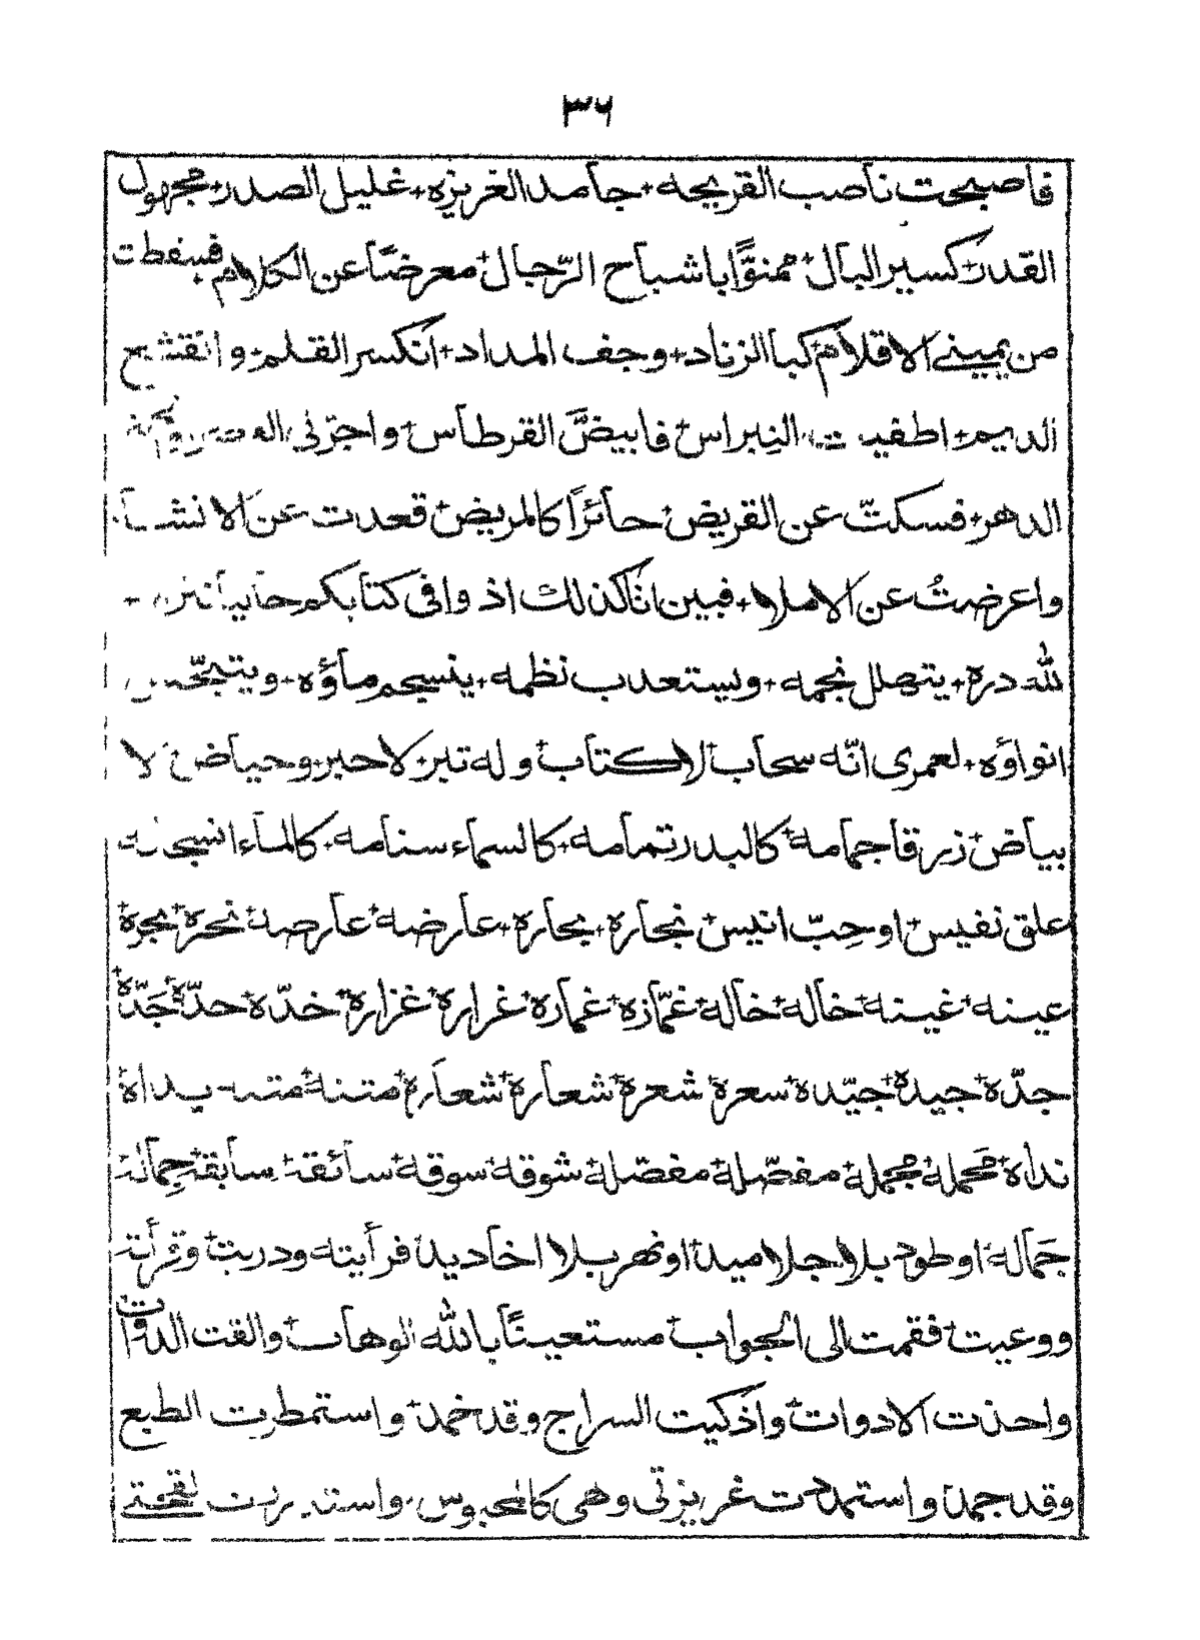 ٣٦
فاصبحت ناصب القريحه + جامد الغريزه + غليل الصدر + مجهول
القدر + كسير البال + ممنوًّا باشباح الرّجال + معرضًا عن الكلام + فسقطت
من يميني الاقلام + كبا الزناد + وجف المداد + انكسر القلم + و انقشع
الديم + اطفيت النبراس + فابيضَّ القرطاس + واجرّني
الدهر + فسكتّ عن القريض + حائرًا كالمريض + قعدت عن الانشاء
واعرضتُ عن الاملاء + فبين انا كذلك اذ وافى كتابكم +
لله دره + يتهلل نجمه + ويستعذب نظمه + ينسجم ماؤه + و
انواؤه + لعمرى انّه سحاب لا كتاب + و له تبر + لا حبر + وحياض لا
بياض + زبرقا جمامه + كالبدر تمامه + كالسماء سنامه + كالماء انسجامه
علق نفيس + اوحبّ انيس + نجاره + بحاره + عارضه + عارضه + نحره + بحره +
عينه + غينه + خاله + خاله + غمّازه + غماره + غراره + غزاره + خدّه + حدّه + جَدّه +
جدّه + جيده + جيّده + سعره + شعره + شعاره + شعاره + متنه + متنه يداه
نداه + مَحمله + مجمله + مفصّله + مفصّله + شوقه + سوقه + سائقه + سابقه + جِماله
جَماله + اوطود بلا جلاميد + اونهر بلا اخاديد + فرأيته ودريت + وقرأته
ووعيت + فقمت الى الجواب + مستعينًا بالله الوهاب + والقت الدوات
واخذت الادوات + واذكيت السراج وقد خمد + واستمطرت الطبع
وقد جمد + واستمدت غريزتى وهى كالمحبوس + و